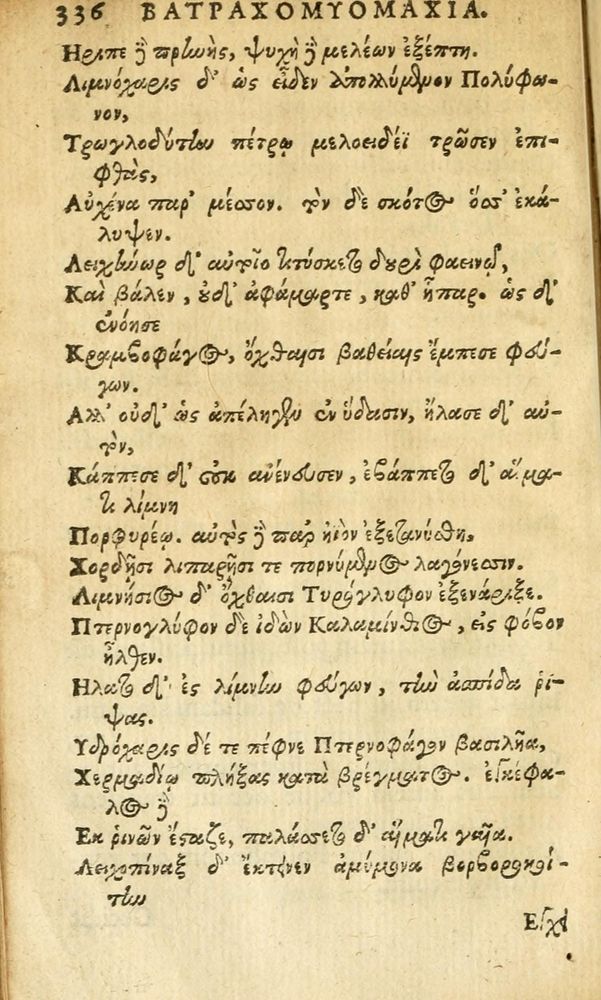 336 ΒΑΤΡΑΧΟΜΥΟΜΑΧΙΑ.
Ηριπε ἢ πρηνὴς, ψυχὴ ἢ μελέων ἐξέπτη.
Λιμνόχαρις δ' ὡς εἶδεν ἀπολλύμενον Πολύφω-
νον,
Τρωγλοδύτην πέτρῳ μελοειδέϊ τρῶσεν ἐπι-
φθὰς,
Αὐχένα παρ' μέσσον. τὸν δὲ σκότος ὄσσ' ἐκά-
λυψεν.
Λειχήνωρ δ' αὐτοῖο τιτύσκετο δουρὶ φαεινῷ,
Καὶ βάλεν, οὐδ' ἀφάμαρτε, καθ' ἧπαρ. ὡς δ'
ἐνόησε
Κραμβοφάγος, ὄχθαισι βαθείαις ἔμπεσε φεύ-
γων.
Αλλ' οὐδ' ὡς ἀπέληγεν ἐν ὕδασιν, ἤλασε δ' αὐ-
τὸν,
Κάππεσε δ' οὐκ ἀνένευσεν, ἐβάπτετο δ' αἵμα-
τι λίμνη
Πορφυρέῳ. αὐτὸς ἢ παρ' ἠϊόν' ἐξετανύσθη,
Χορδῇσι λιπαρῇσι τε πορνύμενος λαγόνεσσιν.
Λιμνήσιος δ' ὄχθαισι Τυρόγλυφον ἐξενάριξε.
Πτερνογλύφον δὲ ἰδὼν Καλαμίνθιος, εἰς φόβον
ἦλθεν.
Ηλατο δ' ἐς λίμνην φεύγων, τὴν ἀσπίδα ῥί-
ψας.
Υδρόχαρις δέ τε πέφνε Πτερνοφάγον βασιλῆα,
Χερμαδίῳ πλήξας κατὰ βρέγματος. ἐγκέφα-
λος ἢ
Εκ ῥινῶν ἔσταζε, παλάσσετο δ' αἵματι γαῖα.
Λειχοπίναξ δ' ἔκτεινεν ἀμύμονα βορβοροκοί-
την
Εγχ